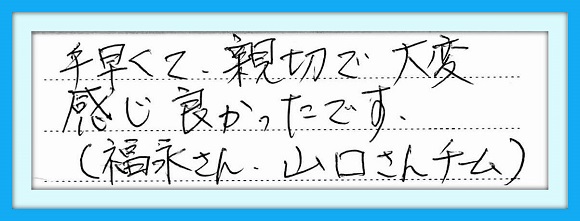 手早くて、親切で大変
感じ良かったです.
(福永さん、山口さんチーム)